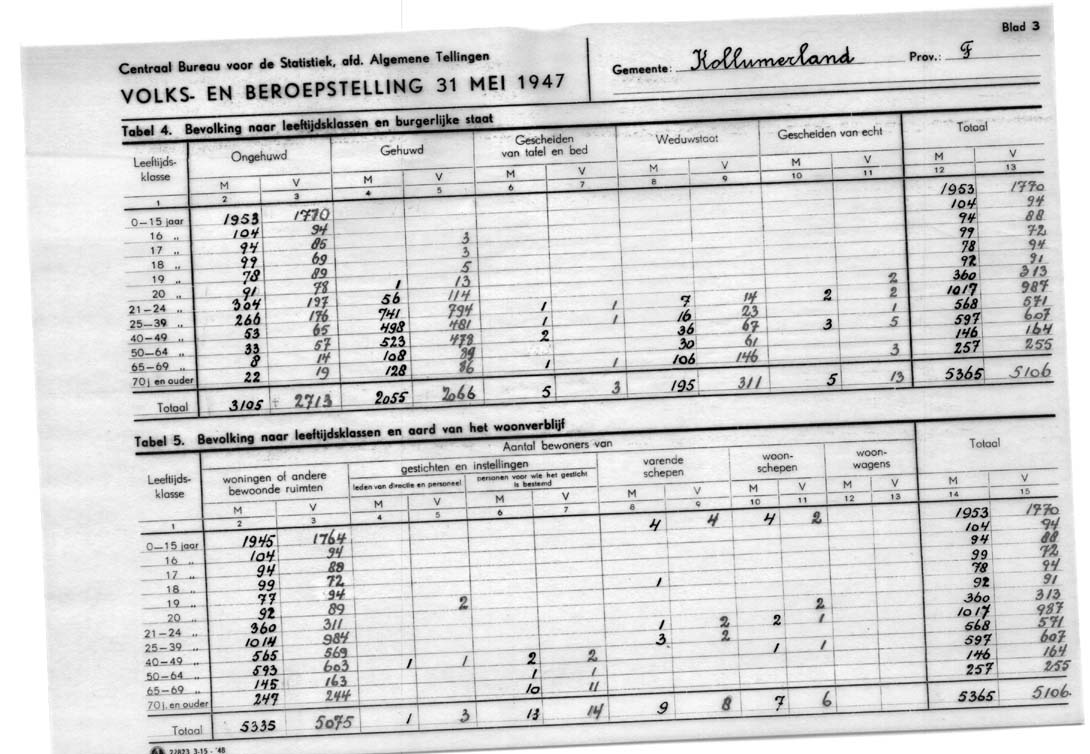 Blad 3
Centraal Bureau voor de Statistiek, afd. Algemene Tellingen
VOLKS- EN BEROEPSTELLING 31 MEI 1947
Gemeente: Kollumerland Prov.: F
Tabel 4. Bevolking naar leeftijdsklassen en burgerlijke staat
Leeftijds-klasse Ongehuwd Gehuwd Gescheiden van tafel en bed Weduwstaat Gescheiden van echt Totaal
M V M V M V M V M V M V
1 2 3 4 5 6 7 8 9 10 11 12 13
0—15 jaar 1953 1770 1953 1770
16 „ 104 94 104 94
17 „ 94 85 3 94 88
18 „ 99 69 3 99 72
19 „ 78 89 5 78 94
20 „ 91 78 1 13 92 91
21—24 „ 304 197 56 114 2 360 313
25—39 „ 266 176 741 794 1 1 7 14 2 2 1017 987
40—49 „ 53 65 498 481 1 1 16 23 1 568 571
50—64 „ 33 57 523 478 2 36 67 3 5 597 607
65—69 „ 8 14 108 89 30 61 146 164
70 j. en ouder 22 19 128 86 1 1 106 146 3 257 255
Totaal 3105 2713 2055 2066 5 3 195 311 5 13 5365 5106
Tabel 5. Bevolking naar leeftijdsklassen en aard van het woonverblijf
Aantal bewoners van
Leeftijds-klasse woningen of andere bewoonde ruimten gestichten en instellingen varende schepen woon-schepen woon-wagens Totaal
leden van directie en personeel personen voor wie het gesticht is bestemd
M V M V M V M V M V M V M V
1 2 3 4 5 6 7 8 9 10 11 12 13 14 15
0—15 jaar 1945 1764 4 4 4 2 1953 1770
16 „ 104 94 104 94
17 „ 94 88 94 88
18 „ 99 72 99 72
19 „ 77 94 1 78 94
20 „ 92 89 2 92 91
21—24 „ 360 311 2 360 313
25—39 „ 1014 984 1 2 2 1 1017 987
40—49 „ 565 569 3 2 568 571
50—64 „ 593 603 1 1 2 2 1 1 597 607
65—69 „ 145 163 1 1 146 164
70 j. en ouder 247 244 10 11 257 255
Totaal 5335 5075 1 3 13 14 9 8 7 6 5365 5106.
22823 3-15 - '48